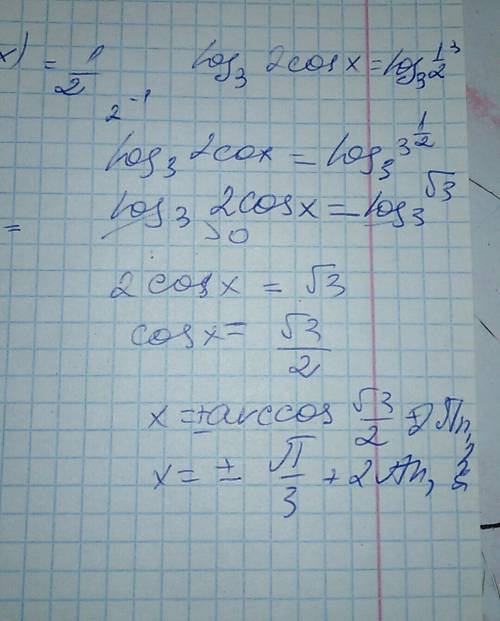 x) = 1/2 log₃ 2cosx = log₃ 1/2 ³
2⁻¹
log₃ 2cox = log₃ 3^(1/2)
log₃ 2cosx = log₃ √3
= >0
2cosx = √3
cosx = √3/2
x = ±arccos √3/2 + 2πn,
x = ± π/3 + 2πn,